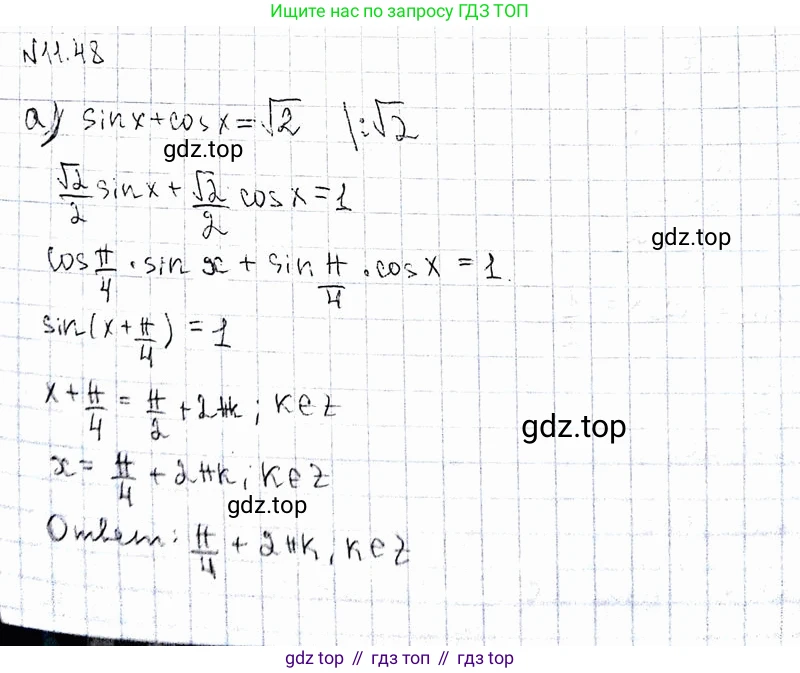 Ищите нас по запросу ГДЗ ТОП
№11.48
а) sinx+cosx=√2 |:√2
gdz.top
√2/2 sinx + √2/2 cosx = 1
gdz.top
cos π/4 · sin x + sin π/4 · cosx = 1.
sin(x + π/4) = 1
x + π/4 = π/2 + 2πk; k∈Z
gdz.top
x = π/4 + 2πk; k∈Z
gdz.top
Ответ: π/4 + 2πk, k∈Z
gdz top // гдз топ // gdz top